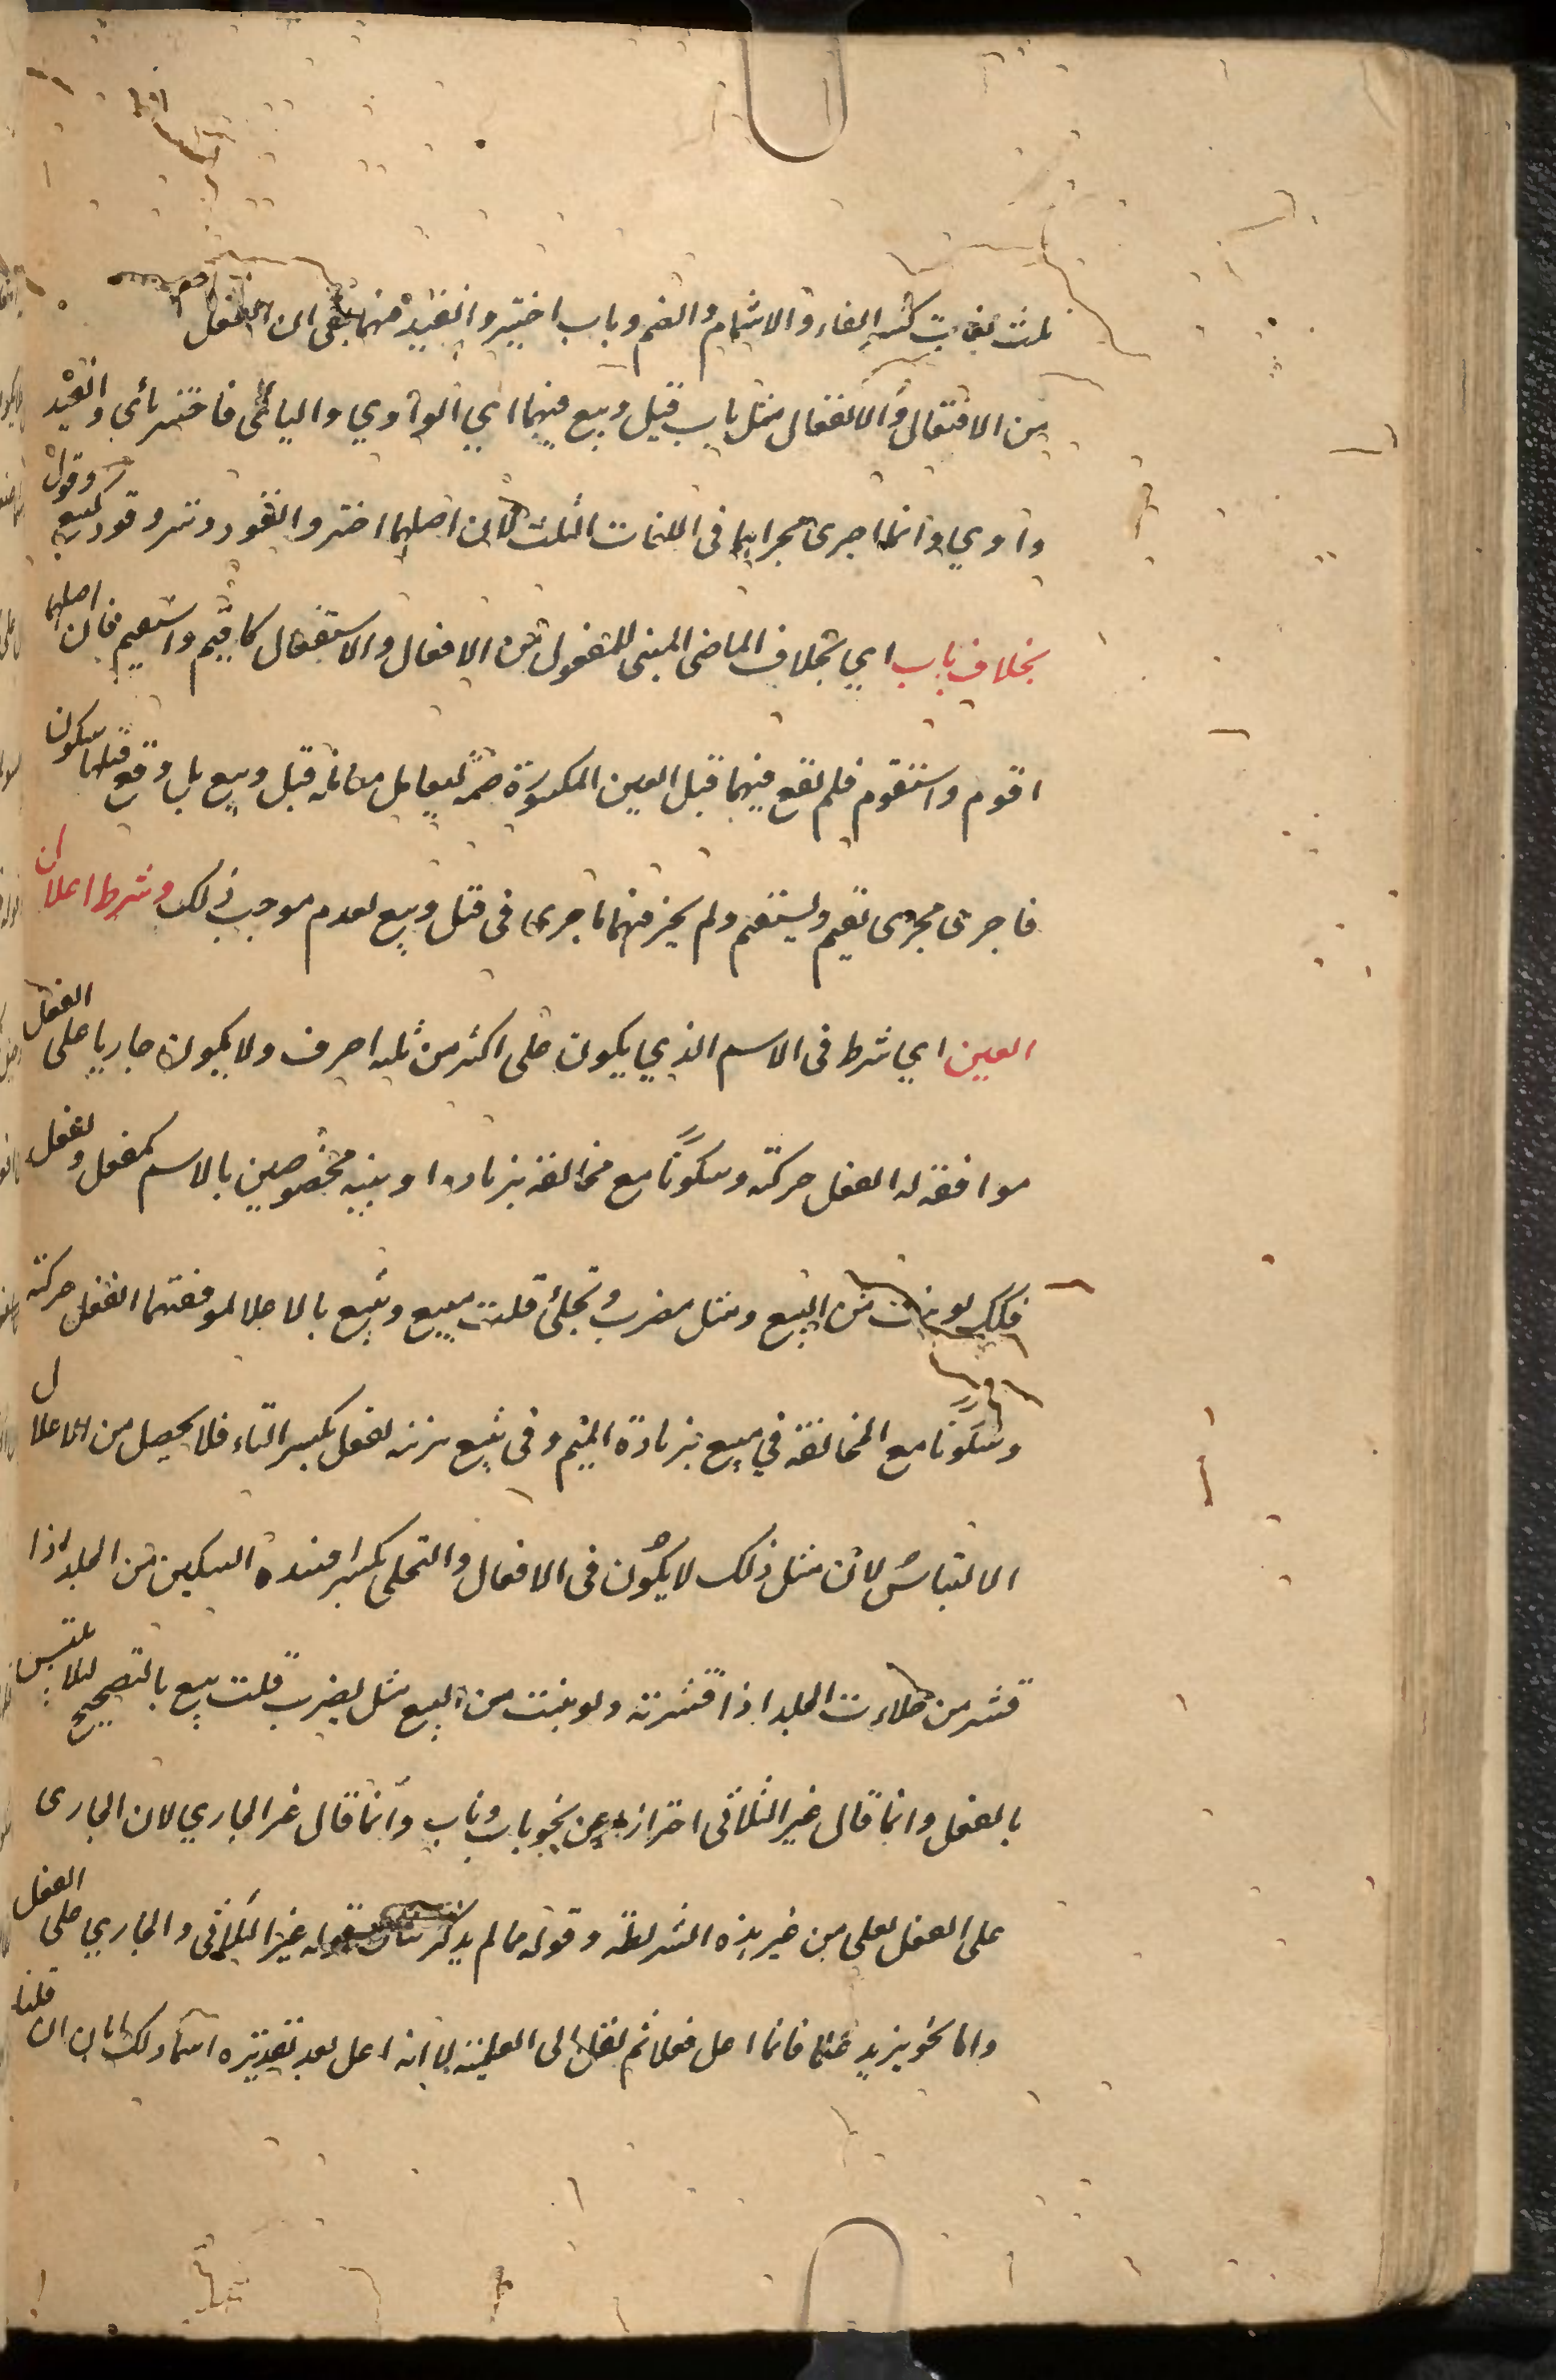 ثلث لغات كسر الفاء والاشمام والضم وباب اختير وانقيد منهما يعنى ان
من الافتعال والانفعال مثل باب قيل وبيع فيهما اي الواوي واليائى فاختير يائي وانقيد
واوي وانما اجرى مجراهما فى اللغات الثلث لان اصلهما اختير وانقود وتير وقود كبيع وقول
بخلاف باب اي بخلاف الماضى المبنى للمفعول من الافعال والاستفعال كاقيم واستقيم فان اصلهما
اقوم واستقوم فلم تقع فيهما قبل العين المكسورة ضمة ليعامل معاملة قيل وبيع بل وقع قبلها سكون
فاجرى مجرى تقيم ويستقيم ولم يجز فيهما ما جرى فى قيل وبيع لعدم موجب ذلك وشرط اعلال
العين اي شرط فى الاسم الذي يكون على اكثر من ثلثه احرف ولا يكون جاريا على الفعل
موافقة له الفعل حركة وسكونا مع مخالفة بزيادة او بنية مخصوصين بالاسم كمفعل وتفعل
فلذلك لو بنيت من البيع ومثل مضرب وتحلئ قلت مبيع وتبيع بالاعلال لموافقتهما الفعل حركة
وسكونا مع المخالفة في مبيع بزيادة الميم وفى تبيع بزنة تفعل بكسر التاء فلا يحصل من الاعلال
الالتباس لان مثل ذلك لا يكون فى الافعال والتحلى بكسر افسده السكين من الجلد اذا
قشر من حلات الجلد اذا قشرته ولو بنيت من البيع مثل يضرب قلت يبيع بالتصحيح لئلا يلتبس
بالفعل وانما قال غير الثلاثى احترازا عن نحو باب وناب وانما قال غير الجاري لان الجارى
على الفعل يعلى من غير هذه الشريطة وقوله مما لم يذكر بقوله غير الثلاثى والجاري على الفعل
واما نحو يزيد علما فانما اعل فعلا ثم نقل الى العلمية لا انه اعل بعد تقديره اسما ولك ان قلنا